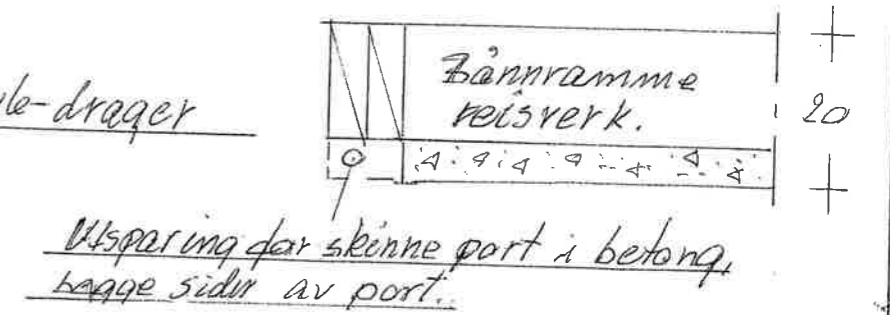 le-drager
Bånnramme
reisverk.
20
Utsparing for skinne port i betong,
bägge sider av port.